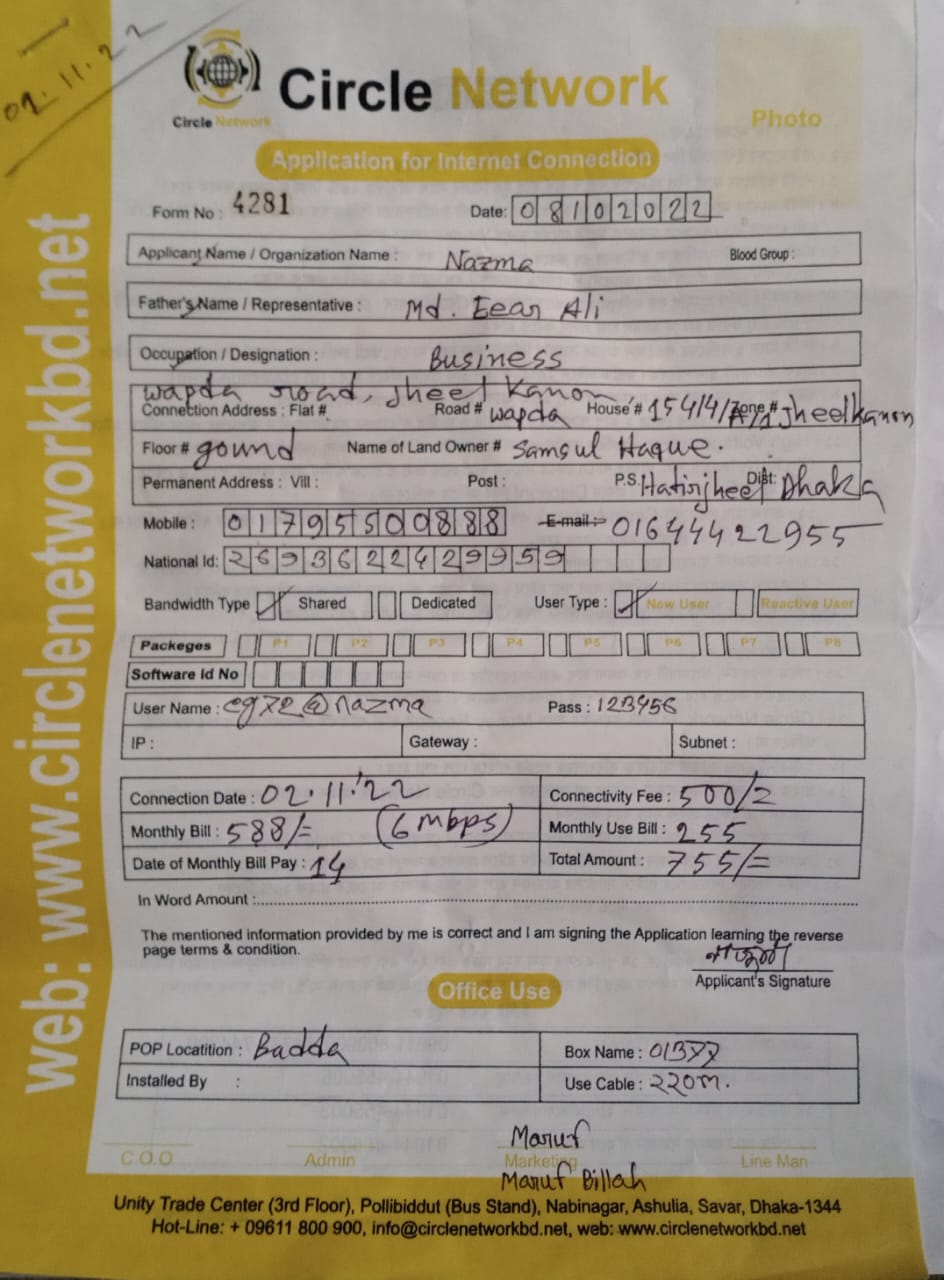 02.11.22
Circle Network
Circle Network
Photo
Application for Internet Connection
Form No : 4281 Date: 08102022
Applicant Name / Organization Name : Nazma Blood Group :
Father's Name / Representative : Md. Eear Ali
Occupation / Designation : Business
wapda road, Jheel Kanon
Connection Address : Flat # Road # wapda House # 154/4/A/1 Zone # Jheelkanon
Floor # gound Name of Land Owner # Samsul Haque.
Permanent Address : Vill : Post : P.S. Hatirjheel Dist: Dhaka
Mobile : 01795500888 E-mail : 01644422955
National Id: 2693622429959
Bandwidth Type Shared Dedicated User Type : New User Reactive User
Packeges P1 P2 P3 P4 P5 P6 P7 P8
Software Id No
User Name : @nazma Pass : 123456
IP : Gateway : Subnet :
Connection Date : 02.11.'22 Connectivity Fee : 500/=
Monthly Bill : 588/= (6 mbps) Monthly Use Bill : 255
Date of Monthly Bill Pay : 14 Total Amount : 755/=
In Word Amount :
The mentioned information provided by me is correct and I am signing the Application learning the reverse
page terms & condition.
নাজমা
Applicant's Signature
Office Use
POP Locatition : Badda Box Name :
Installed By : Use Cable : 220m.
Maruf
C.O.O Admin Marketing Line Man
Maruf Billah
Unity Trade Center (3rd Floor), Pollibiddut (Bus Stand), Nabinagar, Ashulia, Savar, Dhaka-1344
Hot-Line: + 09611 800 900, info@circlenetworkbd.net, web: www.circlenetworkbd.net
web: www.circlenetworkbd.net